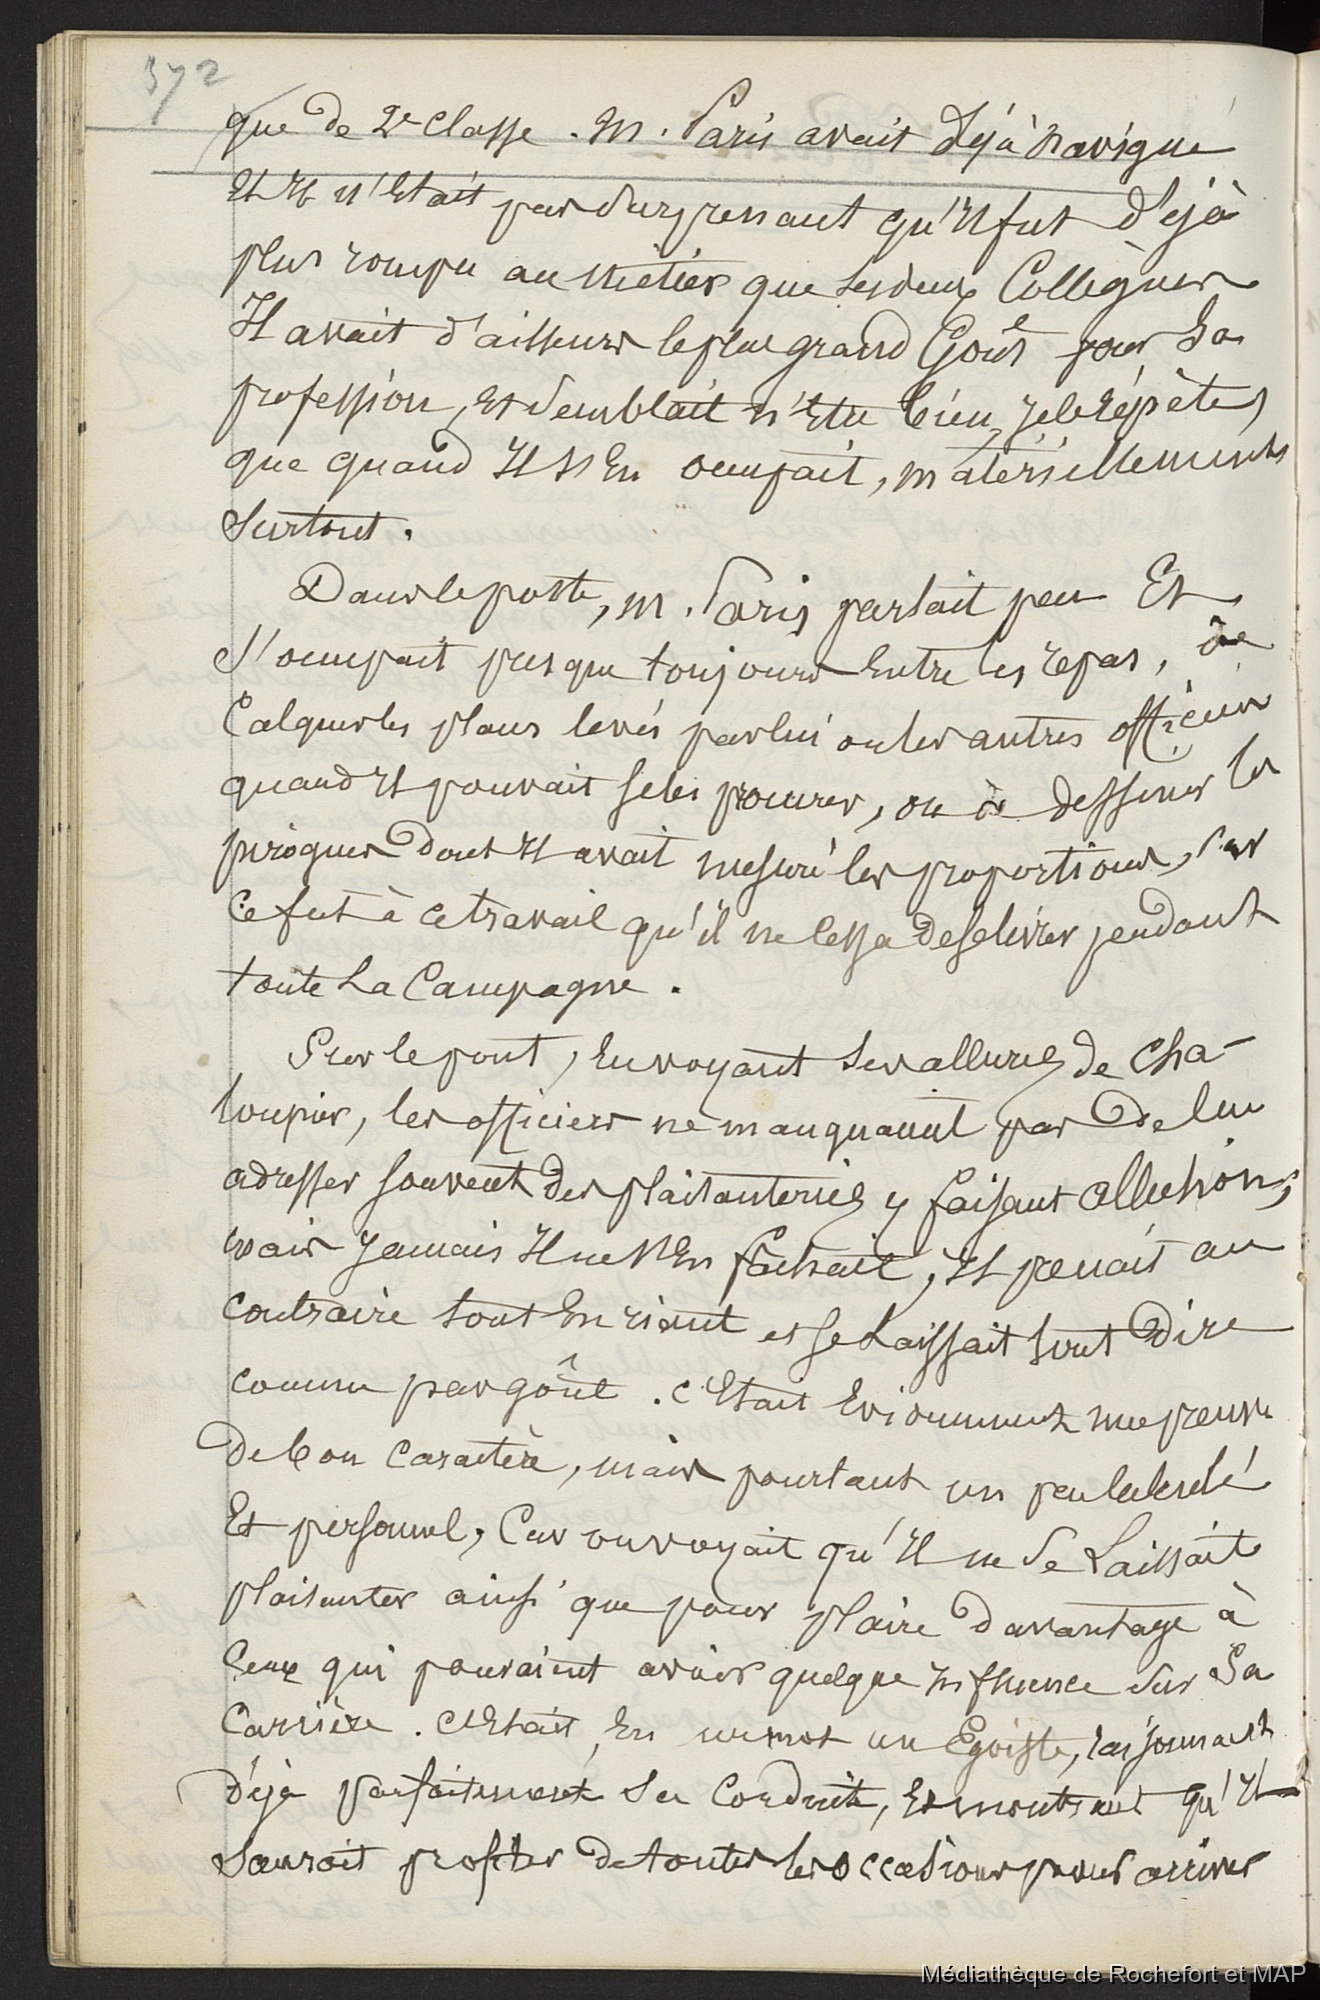 372
que de 2e classe. M. Paris avait déjà navigué
et il n'était pas surprenant qu'il fut déjà
plus rompu au métier que ses deux collègues
Il avait d'ailleurs le plus grand goût pour sa
profession, et semblait n'être bien, je le répète,
que quand il s'en occupait, matériellement
surtout.
Dans le poste, M. Paris parlait peu et
s'occupait presque toujours entre les repas, de
calquer les plans levés par lui ou les autres officiers
quand il pouvait se les procurer, ou à dessiner les
pirogues dont il avait mesuré les proportions, car
ce fut à ce travail qu'il ne cessa de se livrer pendant
toute la campagne.
Sur le pont, en voyant ses allures de cha-
loupier, les officiers ne manquaient pas de lui
adresser souvent des plaisanteries y faisant allusion,
mais jamais il ne s'en fachait, il prenait au
contraire tout en riant et se laissait tout dire
comme par goût. C'était évidemment une preuve
de bon caractère, mais pourtant un peu calculé
et personnel, car on voyait qu'il ne se laissait
plaisanter ainsi que pour plaire davantage à
ceux qui pouvaient avoir quelque influence sur sa
carrière. C'était, en un mot un égoiste, raisonnant
déjà parfaitement sa conduite, et montrant qu'il
saurait profiter de toutes les occasions pour arriver
Médiathèque de Rochefort et MAP